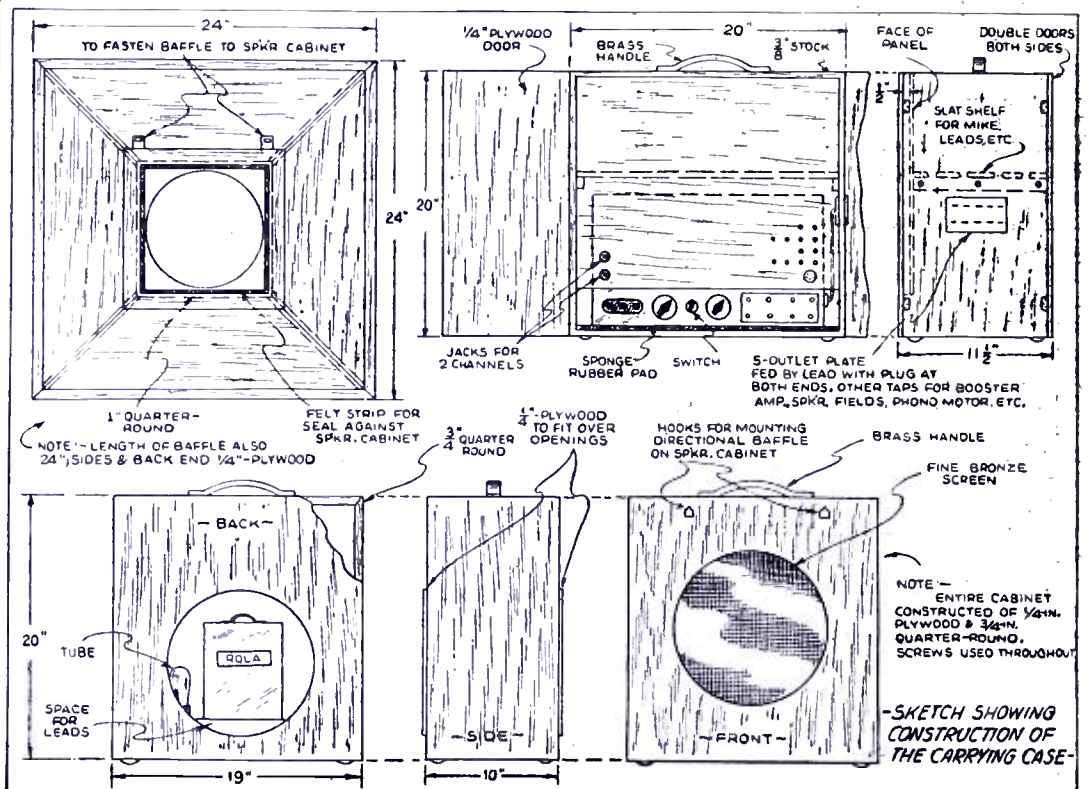 24"
TO FASTEN BAFFLE TO SPKR CABINET
24"
1" QUARTER-
ROUND
FELT STRIP FOR
SEAL AGAINST
SPKR. CABINET
NOTE:- LENGTH OF BAFFLE ALSO
24", SIDES & BACK END 1/4"-PLYWOOD
1/4" PLYWOOD
DOOR
BRASS
HANDLE
20"
3/8" STOCK
20"
JACKS FOR
2 CHANNELS
SPONGE
RUBBER PAD
SWITCH
FACE OF
PANEL
DOUBLE DOORS
BOTH SIDES
SLAT SHELF
FOR MIKE,
LEADS, ETC.
11 1/2"
5-OUTLET PLATE
FED BY LEAD WITH PLUG AT
BOTH ENDS. OTHER TAPS FOR BOOSTER
AMP., SPKR. FIELDS, PHONO MOTOR, ETC.
3/4" QUARTER
ROUND
1/4"-PLYWOOD
TO FIT OVER
OPENINGS
HOOKS FOR MOUNTING
DIRECTIONAL BAFFLE
ON SPKR. CABINET
BRASS HANDLE
FINE BRONZE
SCREEN
-BACK-
20"
TUBE
ROLA
SPACE
FOR
LEADS
19"
-SIDE-
10"
-FRONT-
NOTE:-
ENTIRE CABINET
CONSTRUCTED OF 1/4-IN.
PLYWOOD & 3/4-IN.
QUARTER-ROUND.
SCREWS USED THROUGHOUT
-SKETCH SHOWING
CONSTRUCTION OF
THE CARRYING CASE-